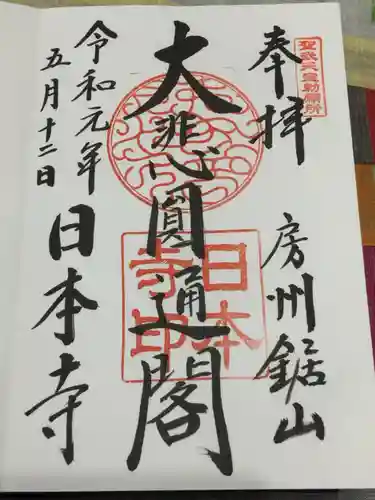 聖武天皇勅願所
奉拝
房州鋸山
大悲圓通閣
日本寺印
令和元年
五月十二日
日本寺